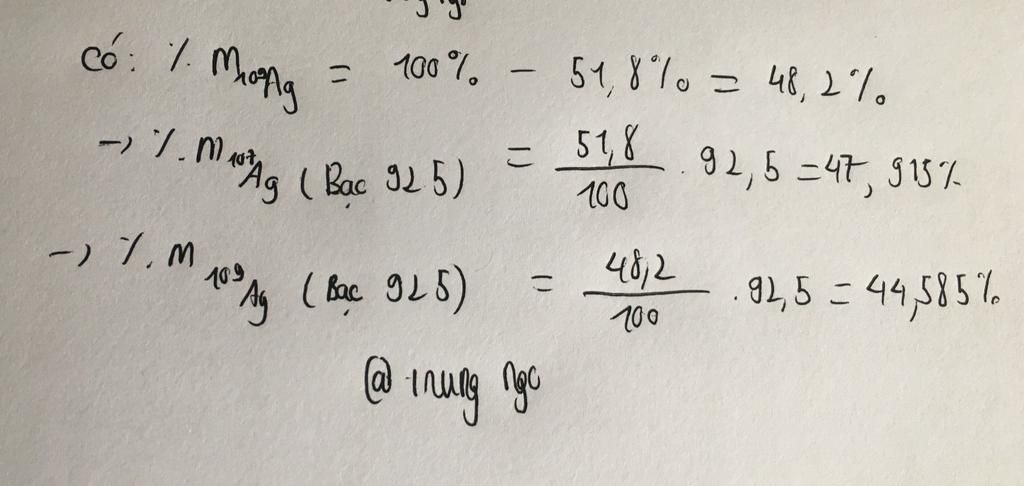 Có: % m 109Ag = 100% - 51,8% = 48,2%
→ %.m 107Ag (Bạc 925) = 51,8/100 . 92,5 = 47,915%
→ %.m 109Ag (Bạc 925) = 48,2/100 . 92,5 = 44,585%